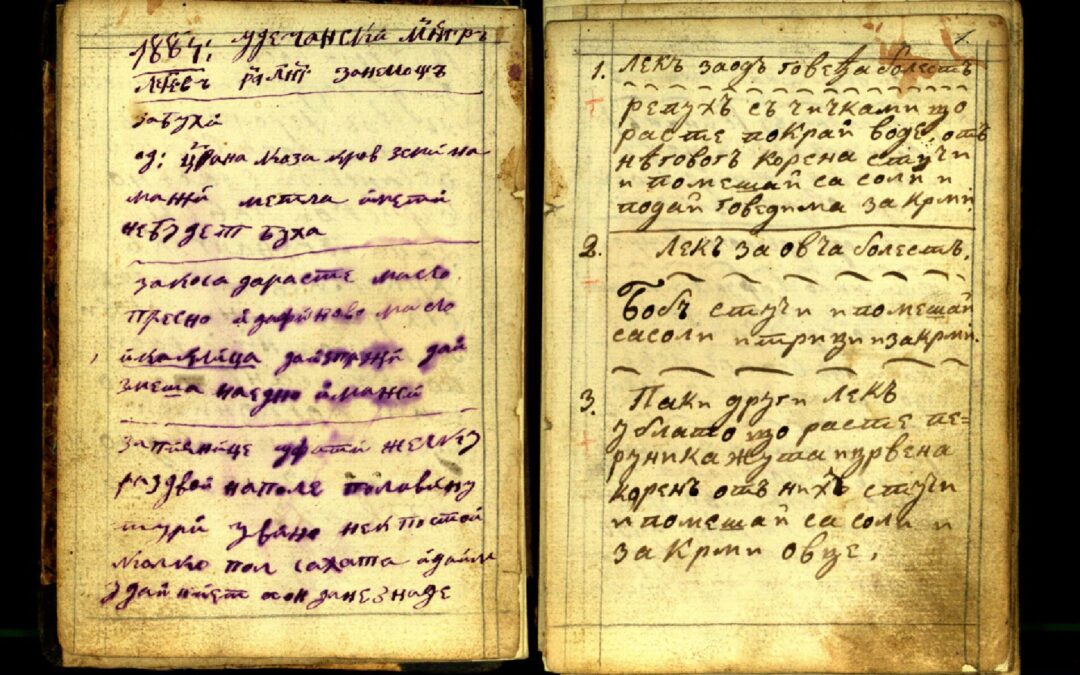 1884: у дечански мнтръ
лекъ занемощъ
за буха
од: црвна коза кров земи на
мажи метла имети
небудет буха
за коса дарасте масло
пресно и зафраново масло
дай
змеша наедно имажи
запияние уфати
раздвой наполе половину
тури у вино нек постои
колко пол сахата идаим
у дай пиет аон данезнаде
1.
1. лекъ заодъ говеђа болестъ
репухъ съ чичками що
расте покрай воде, отъ
нѣговогъ корена стучи
и помешай са соли и
подай говедима за крми.
2. лекъ за овча болестъ.
Бобъ стучи и помешай
сасоли и трици и за крми.
3. Паки други лекъ
у блато що расте пе=
руника жута и црвена
коренъ отъ нихъ стучи
и помешай са соли и
за крми овце.